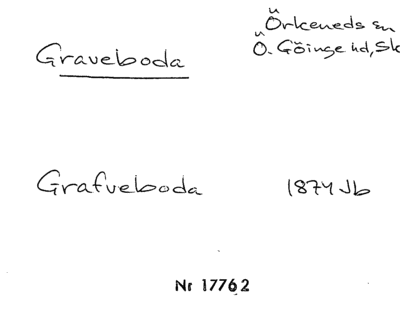 Örkeneds sn
Graveboda
Ö. Göinge hd, Sk
Grafveboda 1874 Jb
Nr 17762